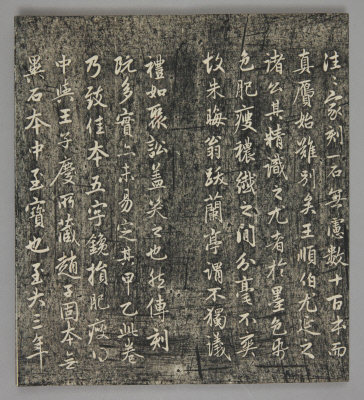 注注家刻一石無慮數十百本而
真贋始難別矣王順伯尤延之
諸公其精識之尤者於墨色紙
色肥瘦穠纖之間分毫不爽
故朱晦翁跋蘭亭謂不獨議
禮如聚訟蓋笑之也然傳刻
既多實亦未易定其甲乙此卷
乃致佳本五字鑱損肥瘦得
中與王子慶所藏趙子固本無
異石本中至寶也至大三年